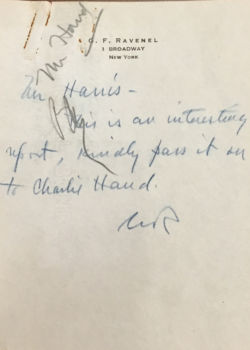 G. F. Ravenel
1 Broadway
New York
Mr Hand
Mr Harris -
This is an interesting
report, kindly pass it on
to Charlie Hand.